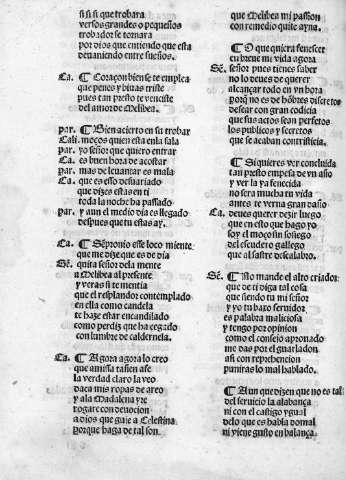 si si si que trobara
versos grandes o pequeños
trobador se tornara
por dios que entiendo que esta
deuaneando entre sueños.
Ca. ¶ Coraçon bien se te emplea
que penes y biuas triste
pues tan presto te venciste
del amor de Melibea.
par. ¶ Bien acierto en su trobar
Cali. moços quien esta enla sala
par. yo señor que quiero entrar
Ca. es buen hora de acostar
par. mas de leuantar es mala
Ca. que es esso desuariado
que dizes estas en ti
toda la noche ha passado
par. y aun el medio dia es llegado
despues que tu estas ay.
Ca. ¶ Sempronio esse loco miente
que me dize que es de dia
Sē. quita señor dela mente
a Melibea al presente
y veras si te mentia
que el resplandor contemplado
en ella como candela
te haze estar encandilado
como perdiz que ha cegado
con lumbre de calderuela.
Ca. ¶ Agora agora lo creo
que a missa tañen asse
la verdad claro la veo
daca mis ropas de arreo
y ala Madalena yre
rogare con deuocion
a dios que guie a Celestina
porque haga de tal son.
que Melibea mi passion
con remedio quite ayna.
¶ O que quiera fenescer
en breue mi vida agora
Sē. señor pues tienes saber
no lo deues de querer
alcançar todo en vn hora
porq̄ no es de hōbres discretos
desear con gran codicia
que sus actos sean perfetos
los publicos y secretos
que se acaban con tristicia.
¶ Si quieres ver concluida
tan presto empesa de vn año
y ver la ya fenecida
no sera mucha tu vida
antes te verna gran daño
Ca. deues querer dezir luego
que en esto que hago yo
soy el moço sin sosiego
del escudero gallego
que al sastre descalabro.
Sē. ¶ No mande el alto criador
que de ti diga tal cosa
que siendo tu mi señor
y yo tu baxo seruidor
es palabra maliciosa
y tengo por opinion
como el consejo apronado
me das por el guarladon
asi con reprehencion
puniras lo mal hablado.
¶ Aun que dizen que no es tal
del seruicio la alabança
ni con el castigo ygual
delo que es habla domal
ni viene gusto en balança.